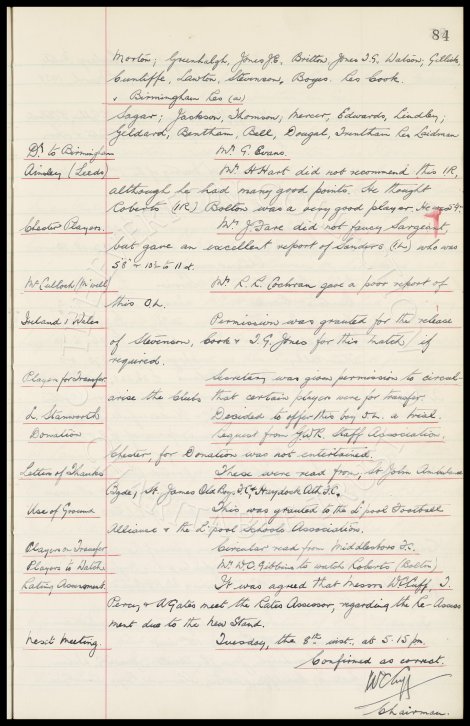 84
Morton; Greenhalgh, Jones J.E. Britton, Jones T.G. Watson, Gillick,
Cunliffe, Lawton, Stevenson, Boyes. Res Cook.
v Birmingham Res (a)
Sagar; Jackson, Thomson; Mercer, Edwards, Lindley;
Geldard, Bentham, Bell, Dougal, Trentham Res Laidman
Dr. to Birmingham Mr. G. Evans.
Ainsley (Leeds) Mr. H Hart did not recommend this IR,
although he had many good points. He thought
Roberts (IR) Bolton was a very good player. He was 5'9".
Chester Players. Mr. J. Fare did not fancy Sargeant,
but gave an excellent report of Sanders (I.L) who was
5'8" + 10½ to 11 st.
McCulloch (M'well) Mr. R. R. Cochran gave a poor report of
this OL.
Ireland v Wales Permission was granted for the release
of Stevenson, Cook & T.G. Jones for this match, if
required.
Players for Transfer Secretary was given permission to circul-
arise the Clubs that certain players were for transfer.
L. Stanworth Decided to offer this boy I.L. a trial.
Donation Request from G.W.R. Staff Association,
Chester, for Donation was not entertained.
Letters of Thanks These were read from, St John Ambulance
Bgde, St. James Old Boys F.C. & Haydock Ath F.C.
Use of Ground This was granted to the L'pool Football
Alliance & the L'pool Schools Association.
Players on Transfer Circular read from Middlesboro F.C.
Players to Watch Mr W.C. Gibbins to watch Roberts (Bolton)
Rating Assessment. It was agreed that Messrs W.C. Cuff, J.
Percy, & A Gates meet the Rates Assessor, regarding the Re-Assess
ment due to the New Stand.
Next Meeting. Tuesday, the 8th inst. at 5.15 pm.
Confirmed as correct.
W C Cuff
Chairman.